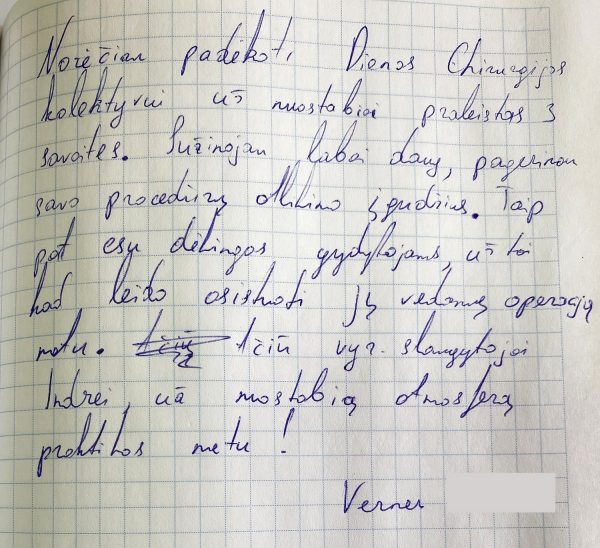 Norėčiau padėkoti Dienos Chirurgijos
kolektyvui už nuostabiai praleistas 3
savaites. Sužinojau labai daug, pagerinau
savo procedūrų atlikimo įgudžius. Taip
pat esu dėkingas gydytojams, už tai
kad leido asistuoti jų vedamų operacijų
metu. Ačiū vyr. slaugytojai
Indrei už nuostabią atmosferą
praktikos metu!
Verner